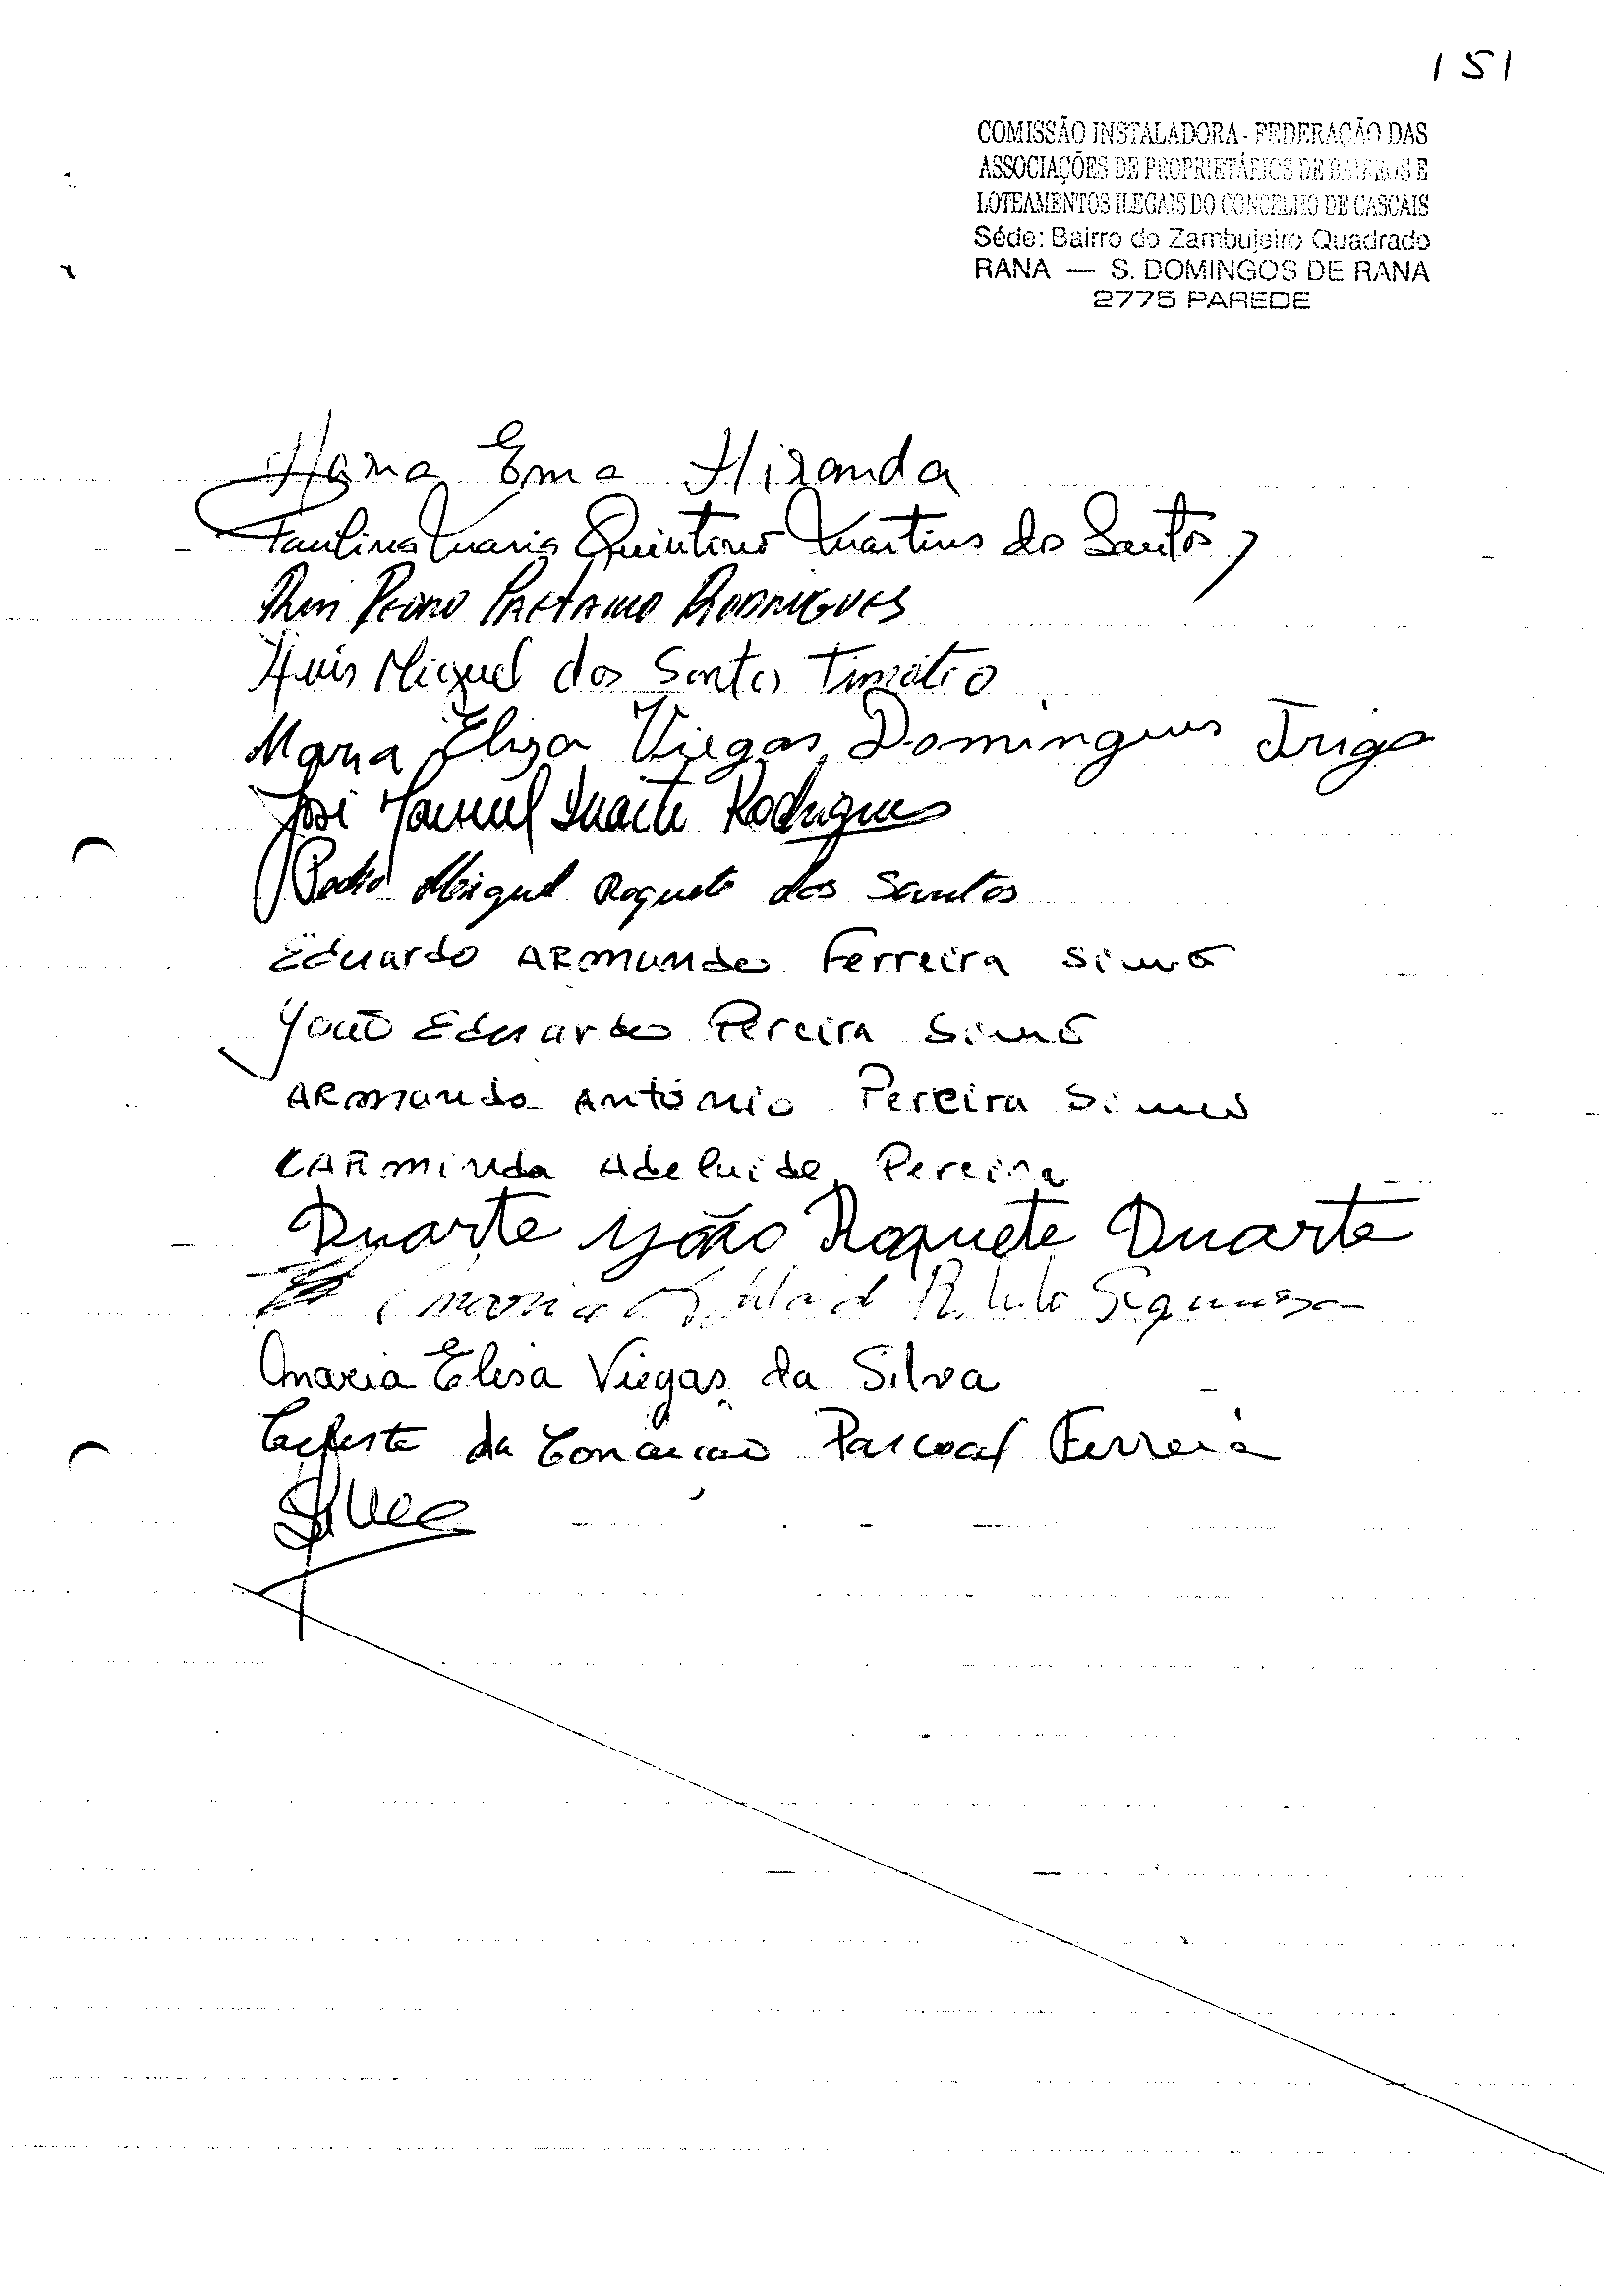 151
COMISSÃO INSTALADORA - FEDERAÇÃO DAS
ASSOCIAÇÕES DE PROPRIETÁRIOS DE BAIRROS E
LOTEAMENTOS ILEGAIS DO CONCELHO DE CASCAIS
Séde: Bairro do Zambujeiro Quadrado
RANA — S. DOMINGOS DE RANA
2775 PAREDE
Maria Ema Miranda
Paulina Maria Quintino Martins dos Santos
Rui Pedro Caetano Rodrigues
Luis Miguel dos Santos Timótio
Maria Eliza Viegas Domingues Trigo
José Manuel Duarte Rodrigues
Pedro Miguel Roquete dos Santos
Eduardo Armando Ferreira
João Eduardo Pereira
Armando António Pereira
Carminda Adelaide Pereira
Duarte João Roquete Duarte
Maria
Maria Elisa Viegas da Silva
Celeste da Conceicão Pascoal Ferreira